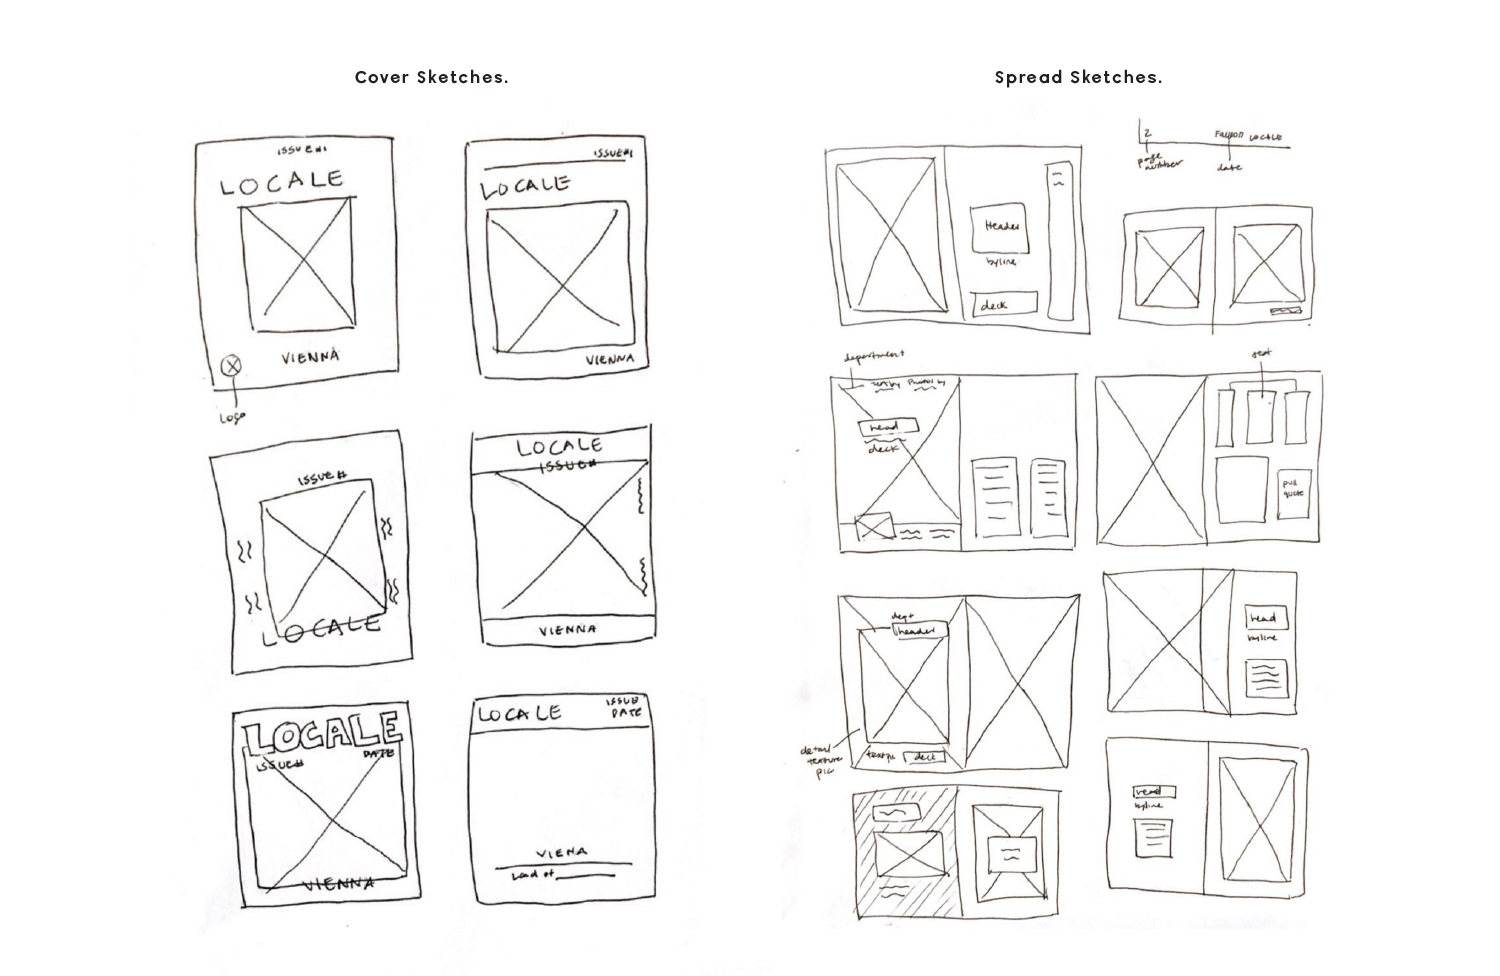 Cover Sketches.
ISSUE #1
LOCALE
VIENNA
Logo
ISSUE#1
LOCALE
VIENNA
ISSUE #
LOCALE
LOCALE
ISSUE#
VIENNA
LOCALE
DATE
ISSUE#
VIENNA
LOCALE
ISSUE
DATE
VIENA
Land of
Spread Sketches.
2
LOCALE
page
number
date
Header
byline
deck
department
Text by Photos by
head
deck
text
pull
quote
dept
header
detail
texture
pic
deck
head
byline
head
byline